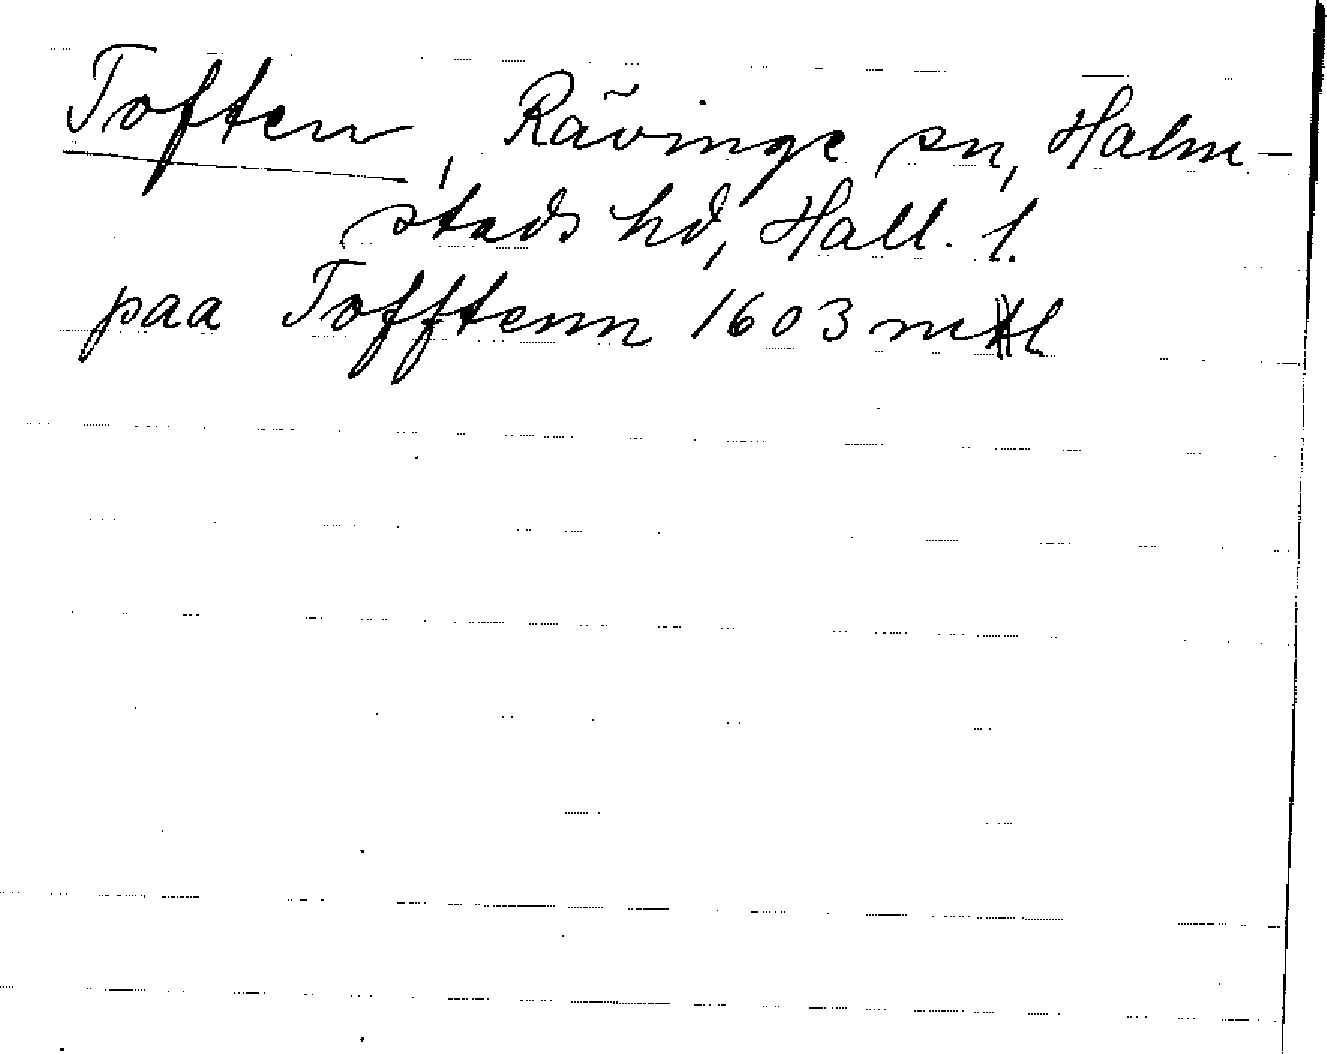 Toften, Rävinge sn, Halm-
stads hd, Hall. l.
paa Tofftenn 1603 mtl